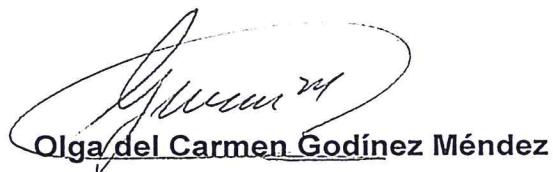 Olga del Carmen Godínez Méndez